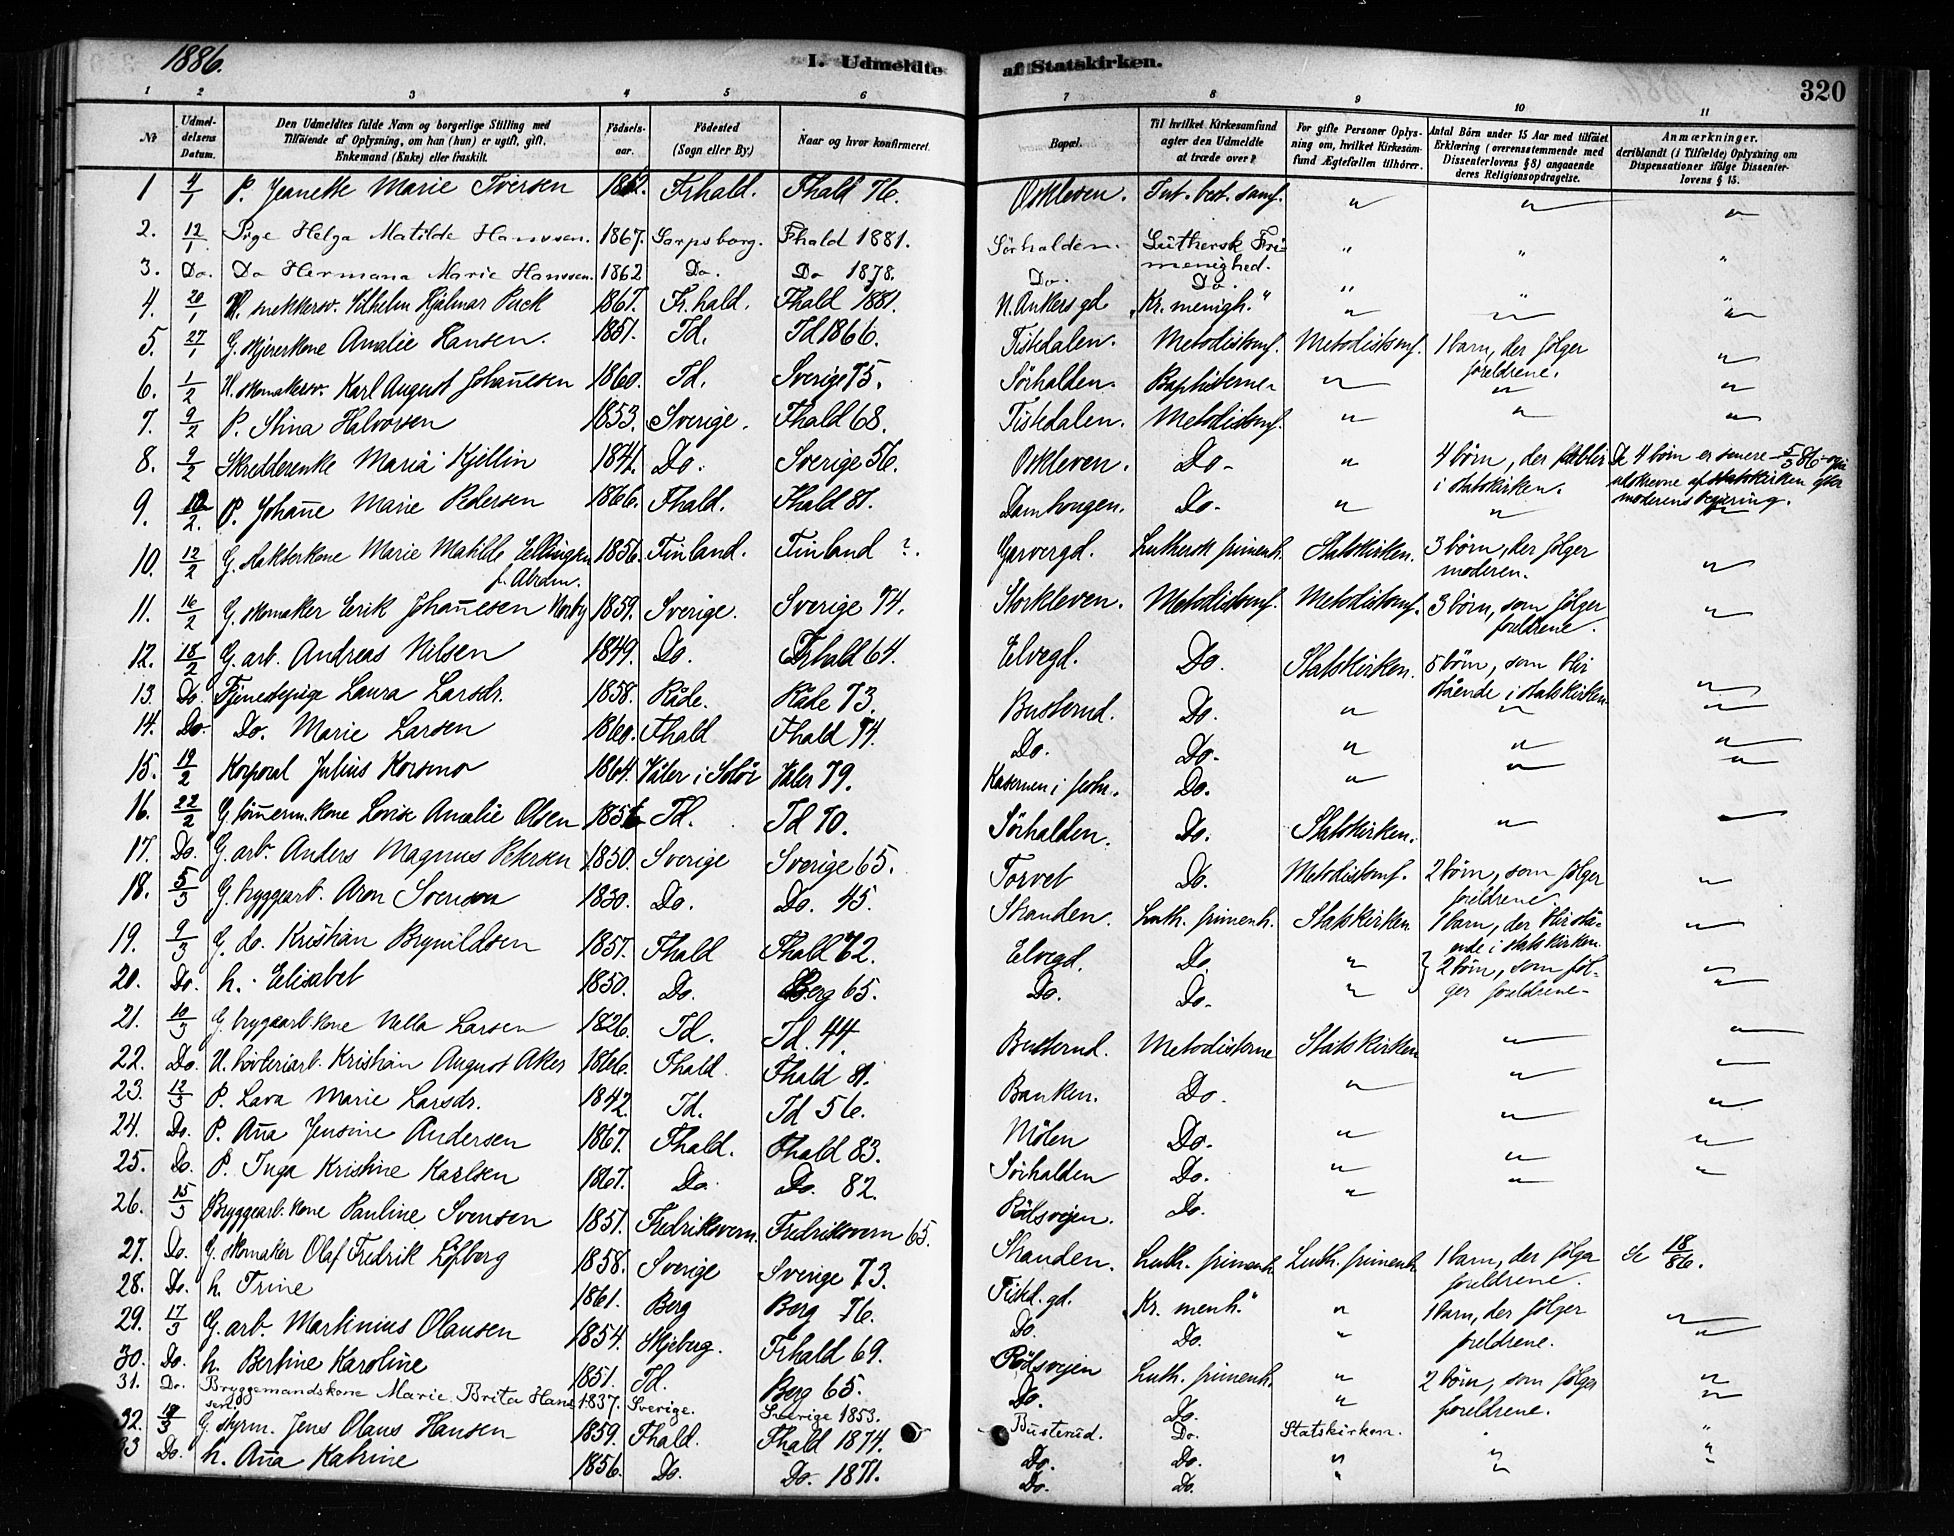 1886.
I. Udmeldte af Statskirken.
320
1 2 3 4 5 6 7 8 9 10 11
No
Udmeldelsens Datum.
Den Udmeldtes fulde Navn og borgerlige Stilling med
Tilföiende af Oplysning, om han (hun) er ugift, gift,
Enkemand (Enke) eller fraskilt.
Födselsaar.
Födested
(Sogn eller By.)
Naar og hvor konfirmeret.
Bopæl.
Til hvilket Kirkesamfund
agter den Udmeldte
at træde over?
For gifte Personer Oplysning om, hvilket Kirkesamfund Ægtefællen tilhörer.
Antal Börn under 15 Aar med tilföiet
Erklæring (overensstemmende med
Dissenterlovens § 8) angaaende
deres Religionsopdragelse.
Anmærkninger.
deriblandt (i Tilfælde) Oplysning om
Dispensationer ifölge Dissenterlovens § 15.
1 4/1 P. Jeanette Marie Iversen 1862. Frhald. Fhald 76. Oskleven. Int. best. samf. " " "
2. 12/1 Pige Helga Matilde Hanssen. 1867. Sarpsborg. Fhald 1881. Sörhalden. Luthersk Frimenighed. " " "
3. Do. Do Hermana Marie Hanssen. 1862 Do. Do 1878. Do. Do. " " "
4. 20/1 U. snekkersv. Vilhelm Hjalmar Puck 1867. Fr.hald. Fhald 1881. N. Ankers gd "Kr. menigh." " " "
5. 27/1 G. skjærerkone Amalie Hansen. 1851. Id. Id 1866. Tistedalen. Metodistsmf. Metodistsmf. 1 barn, der följer foreldrene. "
6. 1/2 U. skomakersv. Karl August Johan̄esen 1860. Id. Sverige 75. Sörhalden. Baptisterne " " "
7. 9/2 P. Stina Halvorsen 1853. Sverige. Fhald 68. Tistedalen. Metodistsmf. " " "
8. 9/2 Skredderenke Maria Kjellin 1841. Do. Sverige 56. Oskleven. Do. " 4 börn, der forblir i statskirken. De 4 börn er senere 5/3 86 utskrevne af statskirken efter moderens begjering.
9. 12/2. P. Johan̄e Marie Pedersen 1866. Fhald. Fhald 81. Damhougen. Do. " " "
10. 12/2 G. slakterkone Marie Matilde Ellingsen 1856. Finland. Finland ?. Garvergd. Luthersk frimenh. Statskirken. 3 börn, der följer moderen. "
11. 16/2 G. skomaker Eerik Johan̄esen Norby 1859. Sverige. Sverige 74. Storkleven. Metodistsmf. Metodistsmf. 3 börn, som följer foreldrene. "
12. 18/2 G. arb. Andreas Nilsen 1849. Do. Frhald 64. Elvegd. Do. Statskirken. 5 börn, som blir stående i statskirken "
13. Do. Tjenestepige Laura Larsdr. 1858. Råde. Råde 73. Busterud. Do. " " "
14. Do. Do. Marie Larsen 1860. Fhald Fhald 74. Do. Do. " " "
15. 19/2 Korporal Julius Korsmo 1864. Våler i Solör Våler 79. Kasernen i festn. Do. " " "
16. 22/2 G. töm̄erm. kone Lovise Amalie Olsen 1856 Id. Id 70. Sörhalden. Do. Statskirken. " "
17. Do. G. arb. Anders Magnus Petersen 1850. Sverige Sverige 65. Torvet Do. Metodistsmf. 2 börn, som följer foreldrene. "
18. 5/3 G. bryggearb. Aron Svenson 1830. Do. Do. 45. Stranden. Luth. frimenh. Statskirken 1 barn, der blir stående i statskirken. "
19. 9/3 G. do. Kristian Brynildsen 1851. Fhald Fhald 72. Elvegd. Do. " } 2 börn, som följer foreldrene. "
20. Do. h. Elisabet 1850. Do. Berg 65. Do. Do. " "
21. 10/3 G. bryggearb. kone Nella Larsen 1826. Id. Id. 44. Busterud. Metodisterne Statskirken " "
22. Do. U. hövleriarb. Kristian August Aker 1866. Fhald. Fhald 81. Banken. Do. " " "
23. 12/3 P. Lava Marie Larsdr. 1842 Id. Id 56. Mölen Do. " " "
24. Do. P. An̄a Jensine Andersen 1867. Fhald. Fhald 83. Sörhalden Do. " " "
25. Do. P. Inga Kristine Karlsen 1867. Do. Do. 82. Rödsvejen. Do. " " "
26. 15/3 Bryggearb. kone Pauline Svensen 1851. Fredriksvern. Fredriksvern 65. Stranden. Luth. frimenh. Luth. frimenh. 1 barn, der följer foreldrene. 18/86.
27. Do. G. skomaker Olaf Fredrik Löfberg 1858. Sverige Sverige 73. Tisted. gd. "Kr. menh." " 1 barn, der följer foreldrene. "
28. Do. h. Trine 1861. Berg Berg 76. Do. Do. " "
29. 17/3 G. arb. Martinius Olausen 1854. Skjeberg. Frhald 69. Rödsvejen Luth. frimenh. " 2 börn, som följer foreldrene. "
30. Do. h. Bertine Karoline 1851. Id. Berg 65. Do. Do. " "
31. Do. Bryggemandskone Marie Brita Hanssen. 1837. Sverige. Sverige 1853. Busterud. Do. Statskirken. " "
32. 19/3 G. styrm. Jens Olaus Hansen 1859. Fhald. Fhald 1874. Do. Do. " " "
33 Do. h. An̄a Katrine 1856. Do. Do. 1871. Do. Do. "